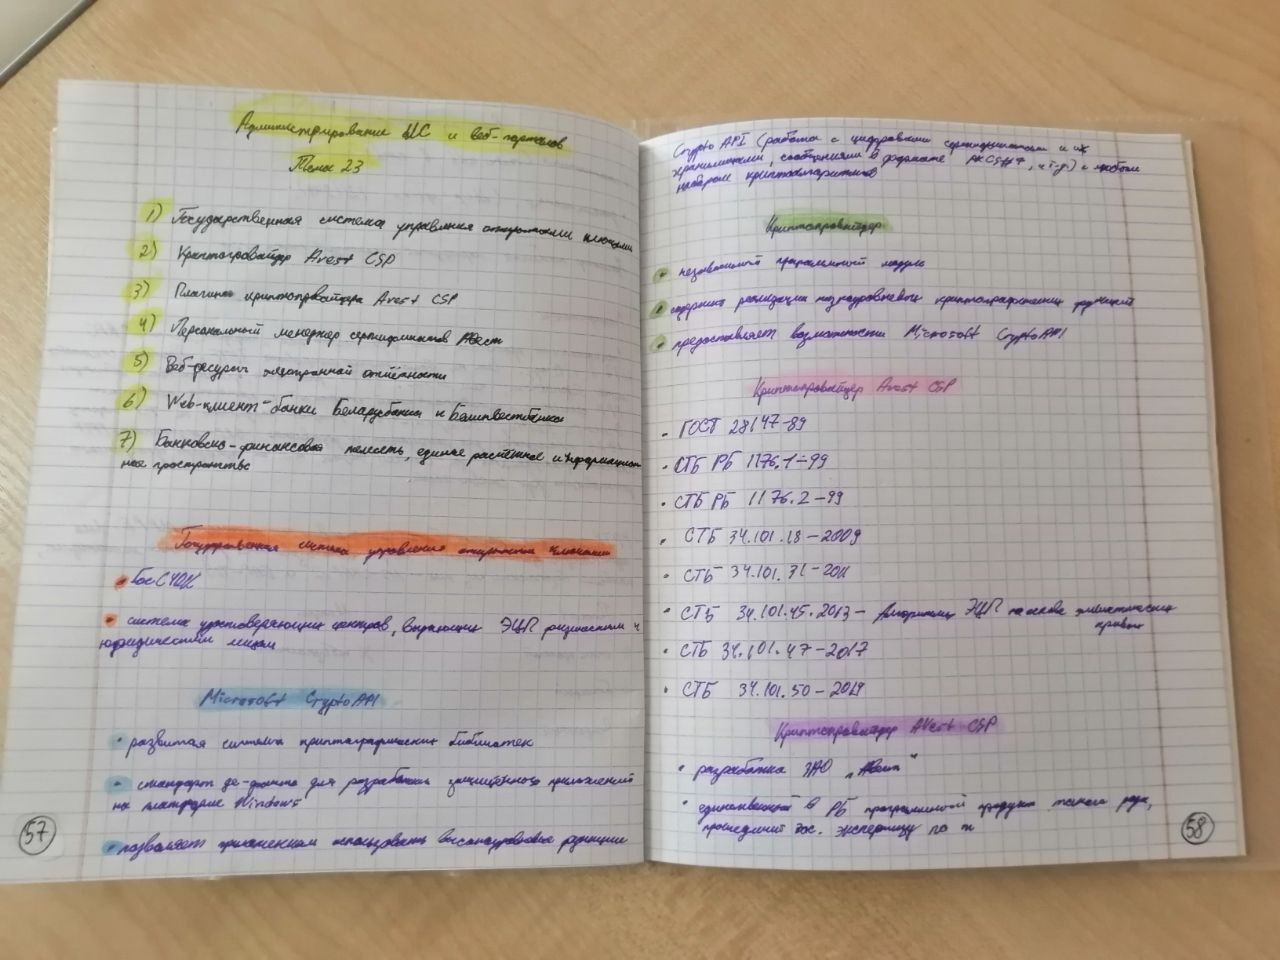 Администрирование ИС и веб-порталов
Тема 23
1) Государственная система управления открытыми ключами
2) Криптопровайдер Avest CSP
3) Плагины криптопровайдера Avest CSP
4) Персональный менеджер сертификатов Авест
5) Веб-ресурсы электронной отчётности
6) Web-клиент-банки Беларусбанка и Белинвестбанка
7) Банковско-финансовая телесеть, единое расчетное и информацион
ное пространство
Государственная система управления открытыми ключами
• ГосСУОК
• система удостоверяющих центров, выдающих ЭЦП физическим и
юридическим лицам
Microsoft CryptoAPI
• развитая система криптографических библиотек
• стандарт де-факто для разработки защищённого приложений
на платформе Windows
• позволяет приложениям использовать высокоуровневые функции
57
Crypto API (работа с цифровыми сертификатами и их
хранилищами, сообщениями в формате PKCS#7, и т.д.) с любым
набором криптоалгоритмов
Криптопровайдер
• независимый программный модуль
• содержит реализации низкоуровневых криптографических функций
• предоставляет возможности Microsoft CryptoAPI
Криптопровайдер Avest CSP
• ГОСТ 28147-89
• СТБ РБ 1176.1-99
• СТБ РБ 1176.2-99
• СТБ 34.101.18-2009
• СТБ 34.101.31-2011
• СТБ 34.101.45-2013- Алгоритмы ЭЦП на основе эллиптических
кривых
• СТБ 34.101.47-2017
• СТБ 34.101.50-2019
Криптопровайдер AVest CSP
• разработка ЗАО "Авест"
• единственный в РБ программный продукт такого рода,
прошедший гос. экспертизу по
58